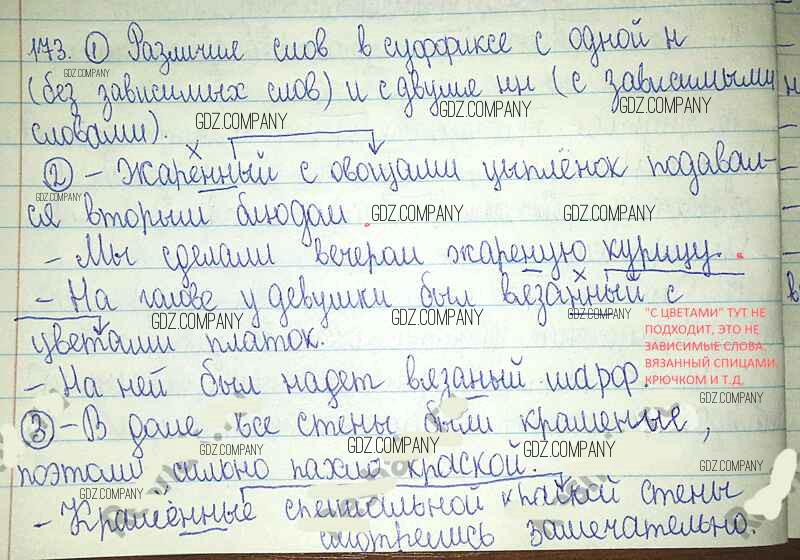 173. ① Различие слов в суффиксе с одной н
GDZ.COMPANY
(без зависимых слов) и с двумя нн (с зависимыми
GDZ.COMPANY GDZ.COMPANY GDZ.COMPANY
словами).
② - Жаренный с овощами цыплёнок подавал-
GDZ.COMPANY
ся вторым блюдом. GDZ.COMPANY GDZ.COMPANY
- Мы сделали вечером жареную курицу.
- На голове у девушки был вязанный с
GDZ.COMPANY GDZ.COMPANY GDZ.COMPANY
"С ЦВЕТАМИ" ТУТ НЕ
ПОДХОДИТ, ЭТО НЕ
ЗАВИСИМЫЕ СЛОВА,
ВЯЗАННЫЙ СПИЦАМИ,
КРЮЧКОМ И Т.Д.
цветами платок.
- На ней был надет вязаный шарф.
GDZ.COMPANY
③ - В доме все стены были крашеные,
GDZ.COMPANY GDZ.COMPANY GDZ.COMPANY
поэтому сильно пахло краской.
GDZ.COMPANY GDZ.COMPANY
- Крашенные специальной краской стены
GDZ.COMPANY GDZ.COMPANY GDZ.COMPANY
смотрелись замечательно.